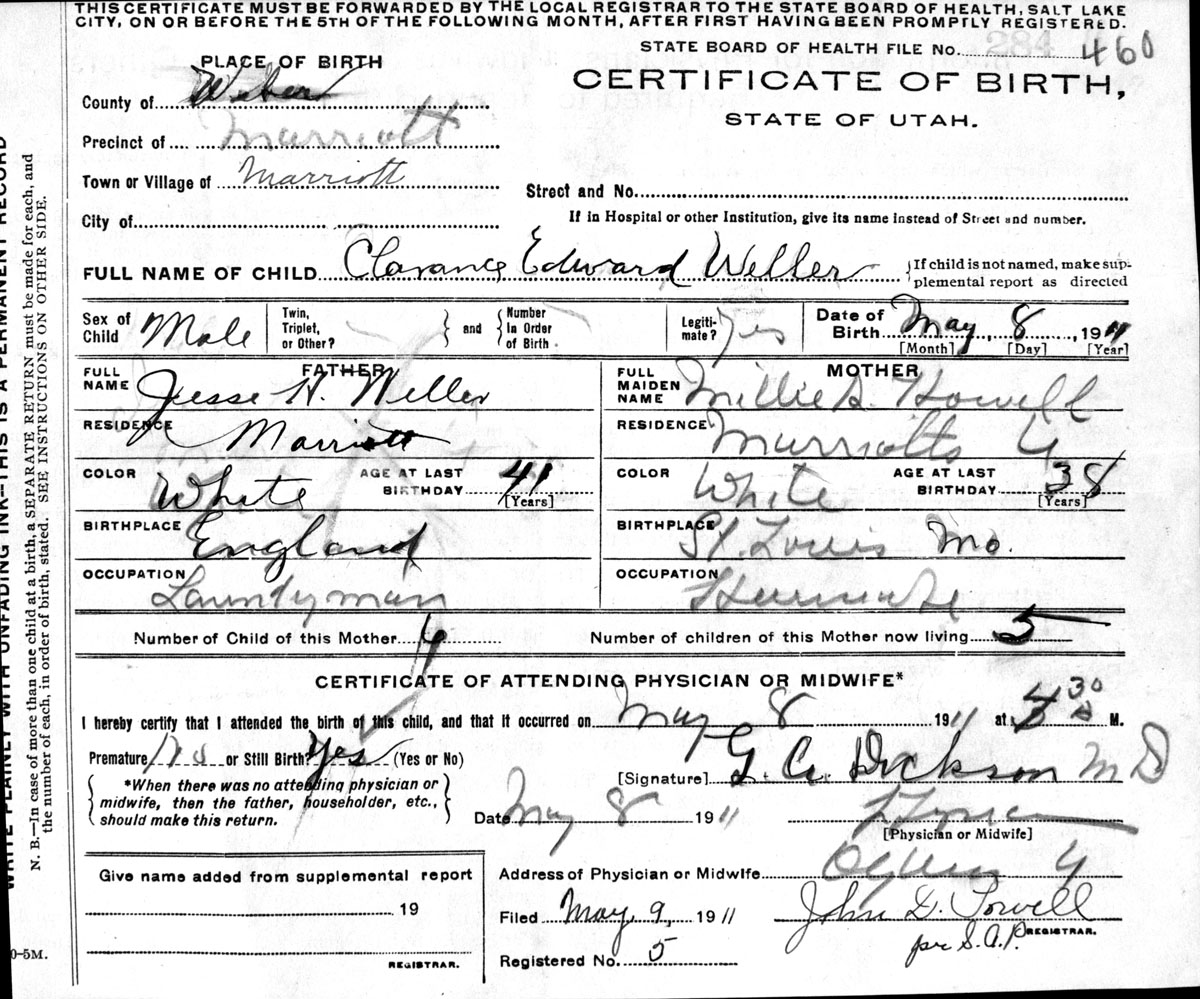 THIS CERTIFICATE MUST BE FORWARDED BY THE LOCAL REGISTRAR TO THE STATE BOARD OF HEALTH, SALT LAKE
CITY, ON OR BEFORE THE 5TH OF THE FOLLOWING MONTH, AFTER FIRST HAVING BEEN PROMPTLY REGISTERED.
STATE BOARD OF HEALTH FILE No. 284 460
PLACE OF BIRTH
CERTIFICATE OF BIRTH,
STATE OF UTAH.
County of Weber
Precinct of Marriott
Town or Village of Marriott
Street and No.
City of
If in Hospital or other Institution, give its name instead of Street and number.
FULL NAME OF CHILD Clarance Edward Weller
If child is not named, make sup-
plemental report as directed
Sex of Child Male
Twin, Triplet, or Other?
and
Number In Order of Birth
Legiti-mate? Yes
Date of Birth May 8, 1911
[Month] [Day] [Year]
FATHER
MOTHER
FULL NAME Jesse H. Weller
FULL MAIDEN NAME Millie A. Howell
RESIDENCE Marriott
RESIDENCE Marriotts U
COLOR White AGE AT LAST BIRTHDAY 41 [Years]
COLOR White AGE AT LAST BIRTHDAY 38 [Years]
BIRTHPLACE England
BIRTHPLACE St. Louis Mo.
OCCUPATION Laundyman
OCCUPATION
Number of Child of this Mother 4
Number of children of this Mother now living 5
CERTIFICATE OF ATTENDING PHYSICIAN OR MIDWIFE*
I hereby certify that I attended the birth of this child, and that it occurred on May 8 1911 at 30 M.
Premature No or Still Birth? Yes (Yes or No)
[Signature] G. A. Dickson MD
*When there was no attending physician or
midwife, then the father, householder, etc.,
should make this return.
Date May 8 1911
[Physician or Midwife]
Give name added from supplemental report
19
REGISTRAR.
Address of Physician or Midwife Ogden U
Filed May 9, 1911 John D. Powell
per S. A. P. REGISTRAR.
Registered No. 5
WRITE PLAINLY WITH UNFADING INK—THIS IS A PERMANENT RECORD
N. B.—In case of more than one child at a birth, a SEPARATE RETURN must be made for each, and
the number of each, in order of birth, stated. SEE INSTRUCTIONS ON OTHER SIDE.
0-5M.